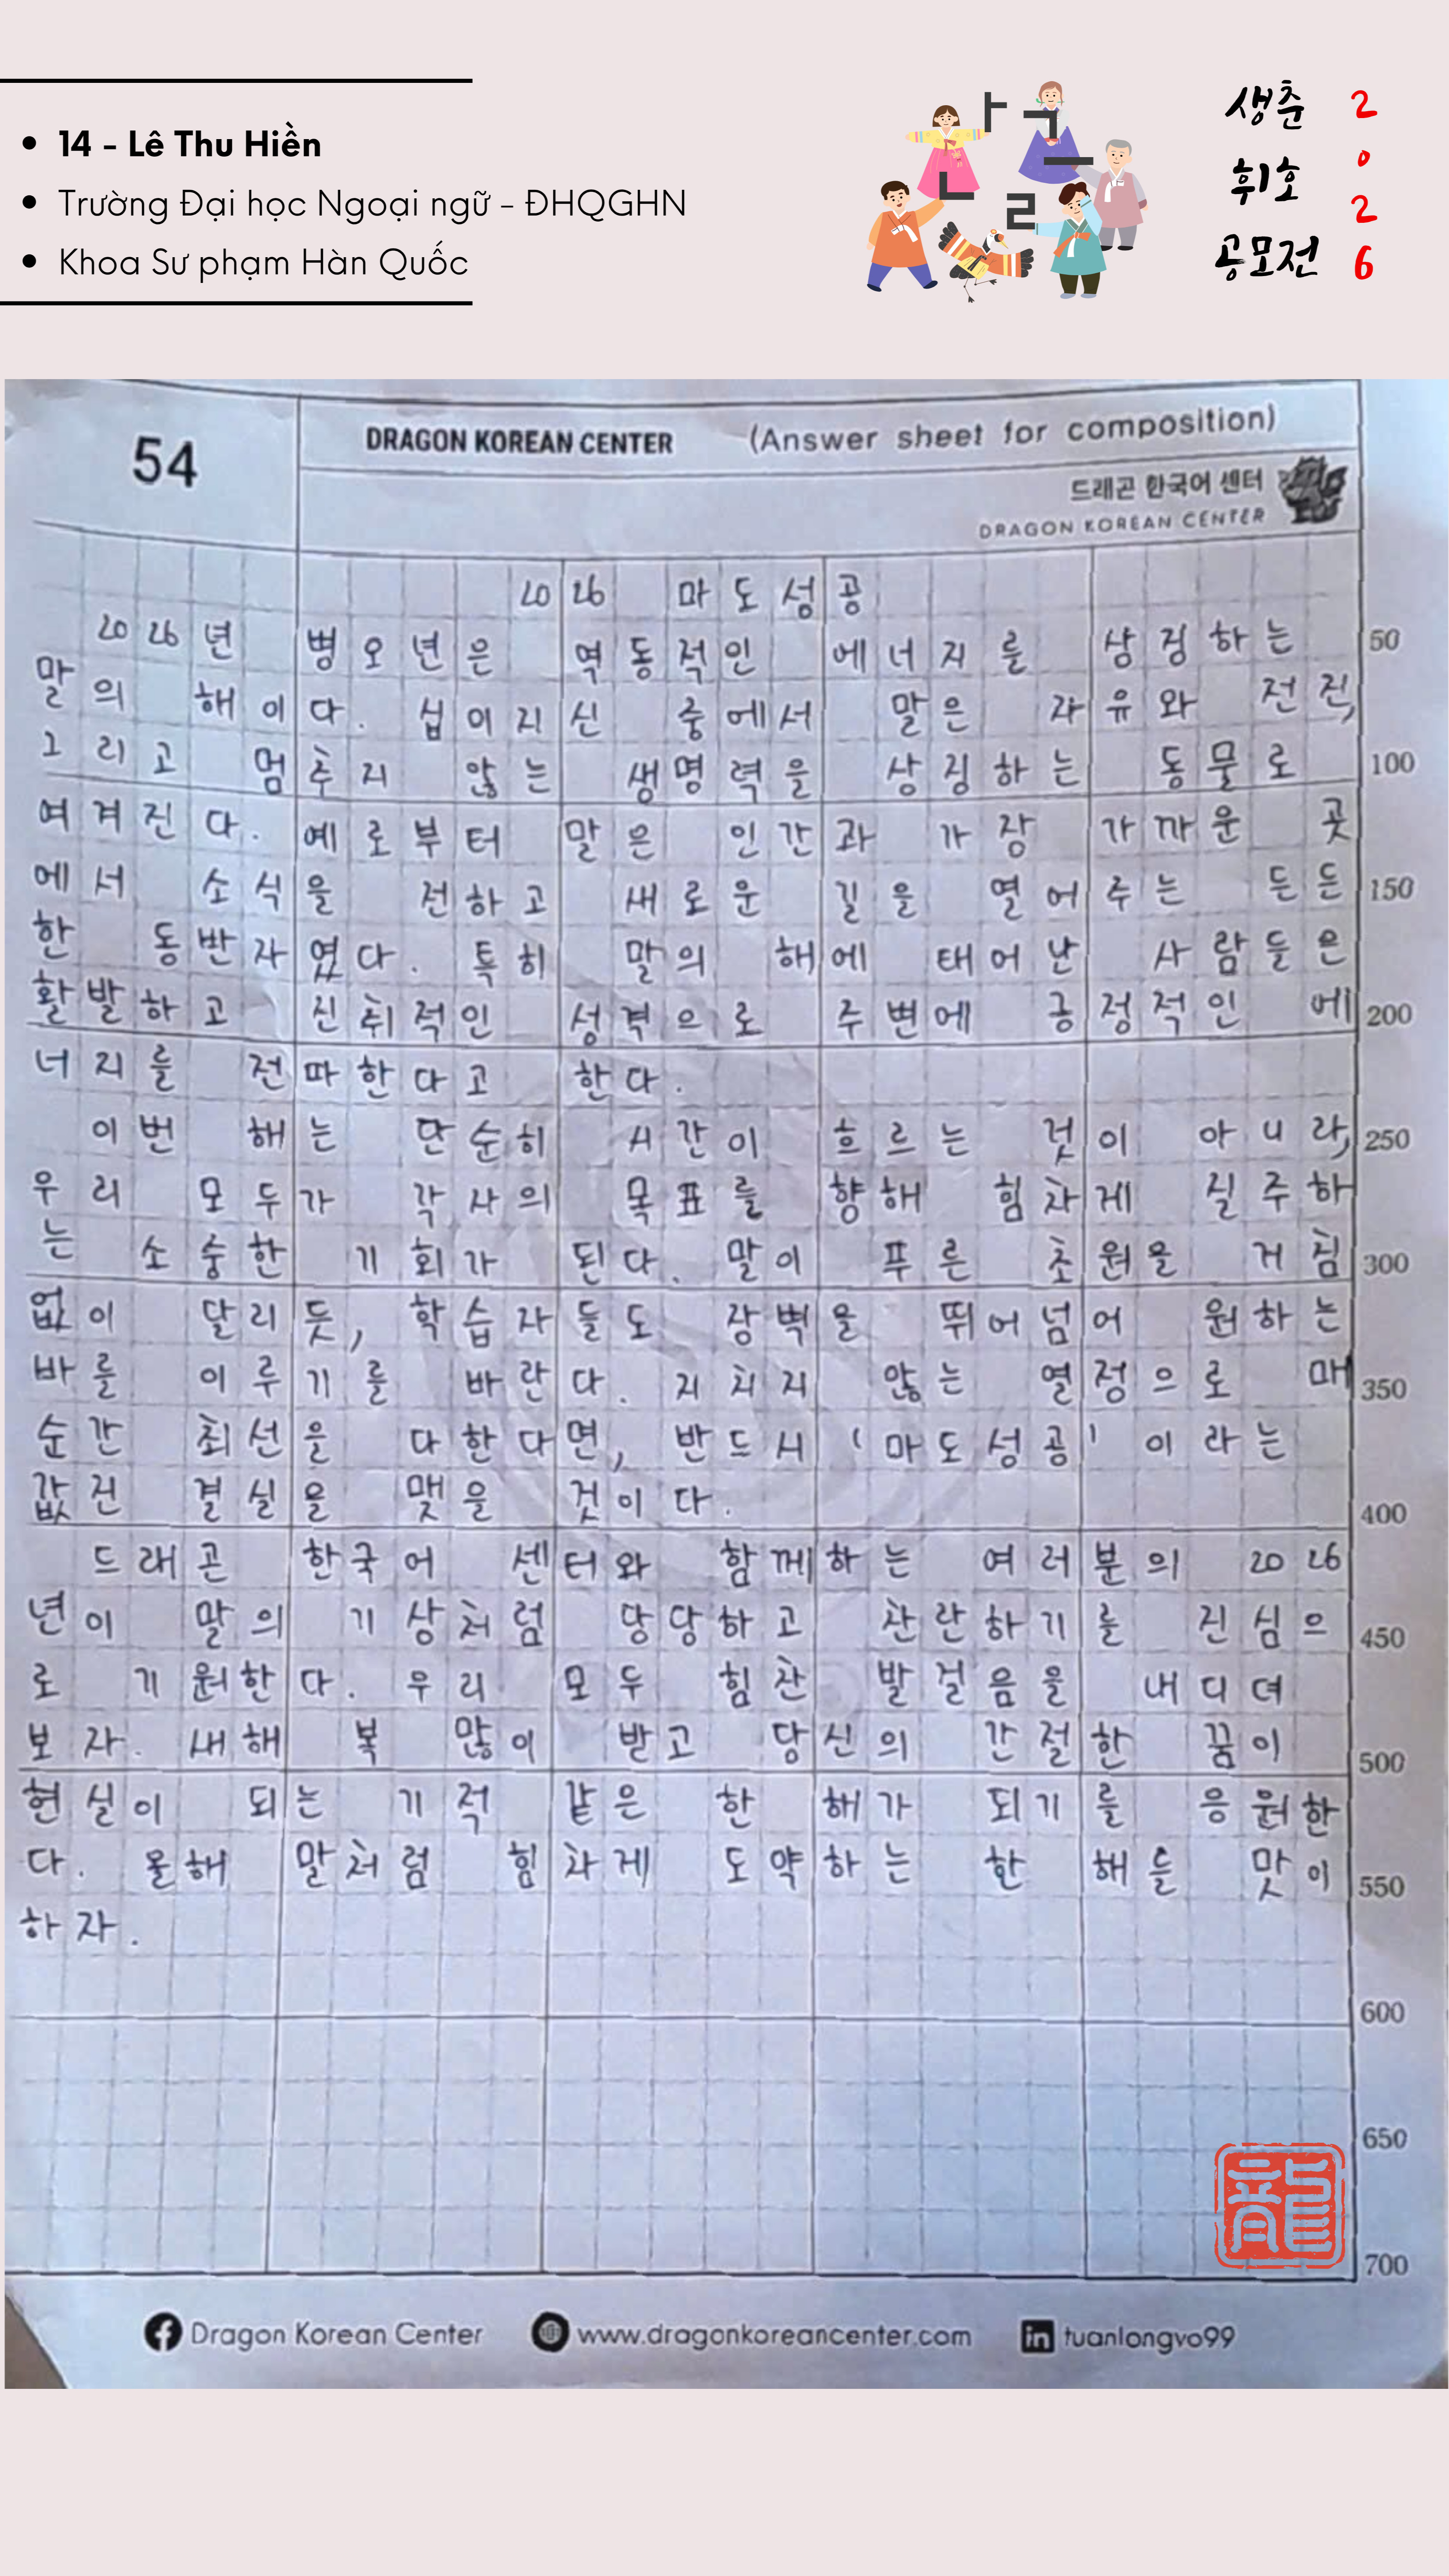 14 - Lê Thu Hiền
Trường Đại học Ngoại ngữ - ĐHQGHN
Khoa Sư phạm Hàn Quốc
ㅏ ㄱ ㅡ ㄴ ㄹ
생춘 2
휘호 0
2
공모전 6
54
DRAGON KOREAN CENTER (Answer sheet for composition)
드래곤 한국어 센터
DRAGON KOREAN CENTER
2026 마도성공
2026년 병오년은 역동적인 에너지를 상징하는 50
말의 해이다. 십이지신 중에서 말은 자유와 전진,
그리고 멈추지 않는 생명력을 상징하는 동물로 100
여겨진다. 예로부터 말은 인간과 가장 가까운 곳
에서 소식을 전하고 새로운 길을 열어주는 든든 150
한 동반자였다. 특히 말의 해에 태어난 사람들은
활발하고 진취적인 성격으로 주변에 긍정적인 에 200
너지를 전파한다고 한다.
이번 해는 단순히 시간이 흐르는 것이 아니라, 250
우리 모두가 각자의 목표를 향해 힘차게 질주하
는 소중한 기회가 된다. 말이 푸른 초원을 거침 300
없이 달리듯, 학습자들도 장벽을 뛰어넘어 원하는
바를 이루기를 바란다. 지치지 않는 열정으로 매 350
순간 최선을 다한다면, 반드시 '마도성공'이라는
값진 결실을 맺을 것이다. 400
드래곤 한국어 센터와 함께하는 여러분의 2026
년이 말의 기상처럼 당당하고 찬란하기를 진심으 450
로 기원한다. 우리 모두 힘찬 발걸음을 내디뎌
보자. 새해 복 많이 받고 당신의 간절한 꿈이 500
현실이 되는 기적 같은 한 해가 되기를 응원한
다. 올해 말처럼 힘차게 도약하는 한 해를 맞이 550
하자.
600
650
龍
700
Dragon Korean Center www.dragonkoreancenter.com in tuanlongvo99